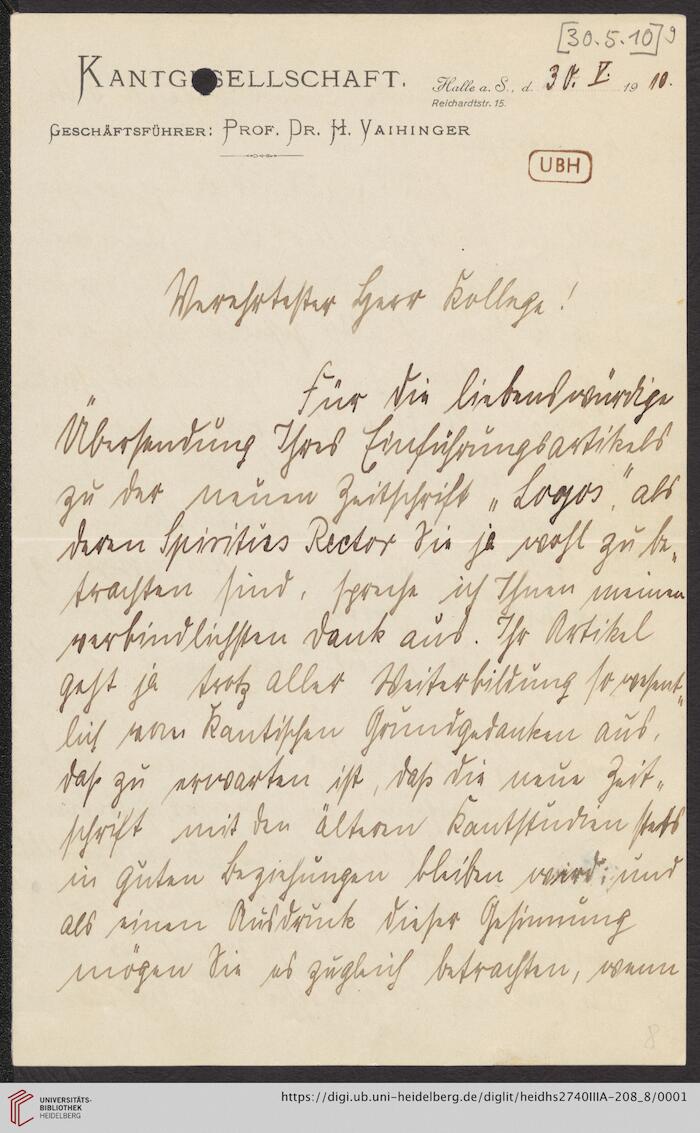 [30.5.10] 9
KANTGESELLSCHAFT.
Halle a. S., d. 30. V. 1910.
Reichardtstr. 15.
GESCHÄFTSFÜHRER: PROF. DR. H. VAIHINGER
UBH
Verehrtester Herr Kollege!
Für die liebenswürdige
Übersendung Ihres Einführungsartikels
zu der neuen Zeitschrift „Logos", als
deren Spiritus Rector Sie ja wohl zu be-
trachten sind, spreche ich Ihnen meinen
verbindlichsten Dank aus. Ihr Artikel
geht ja trotz aller Weiterbildung so wesent-
lich vom Kantischen Grundgedanken aus,
daß zu erwarten ist, daß die neue Zeit-
schrift mit den älteren Kantstudien stets
in guten Beziehungen bleiben wird; und
als einen Ausdruck dieser Gesinnung
mögen Sie es zugleich betrachten, wenn
8
UNIVERSITÄTS-
BIBLIOTHEK
HEIDELBERG
https://digi.ub.uni-heidelberg.de/diglit/heidhs2740IIIA-208_8/0001